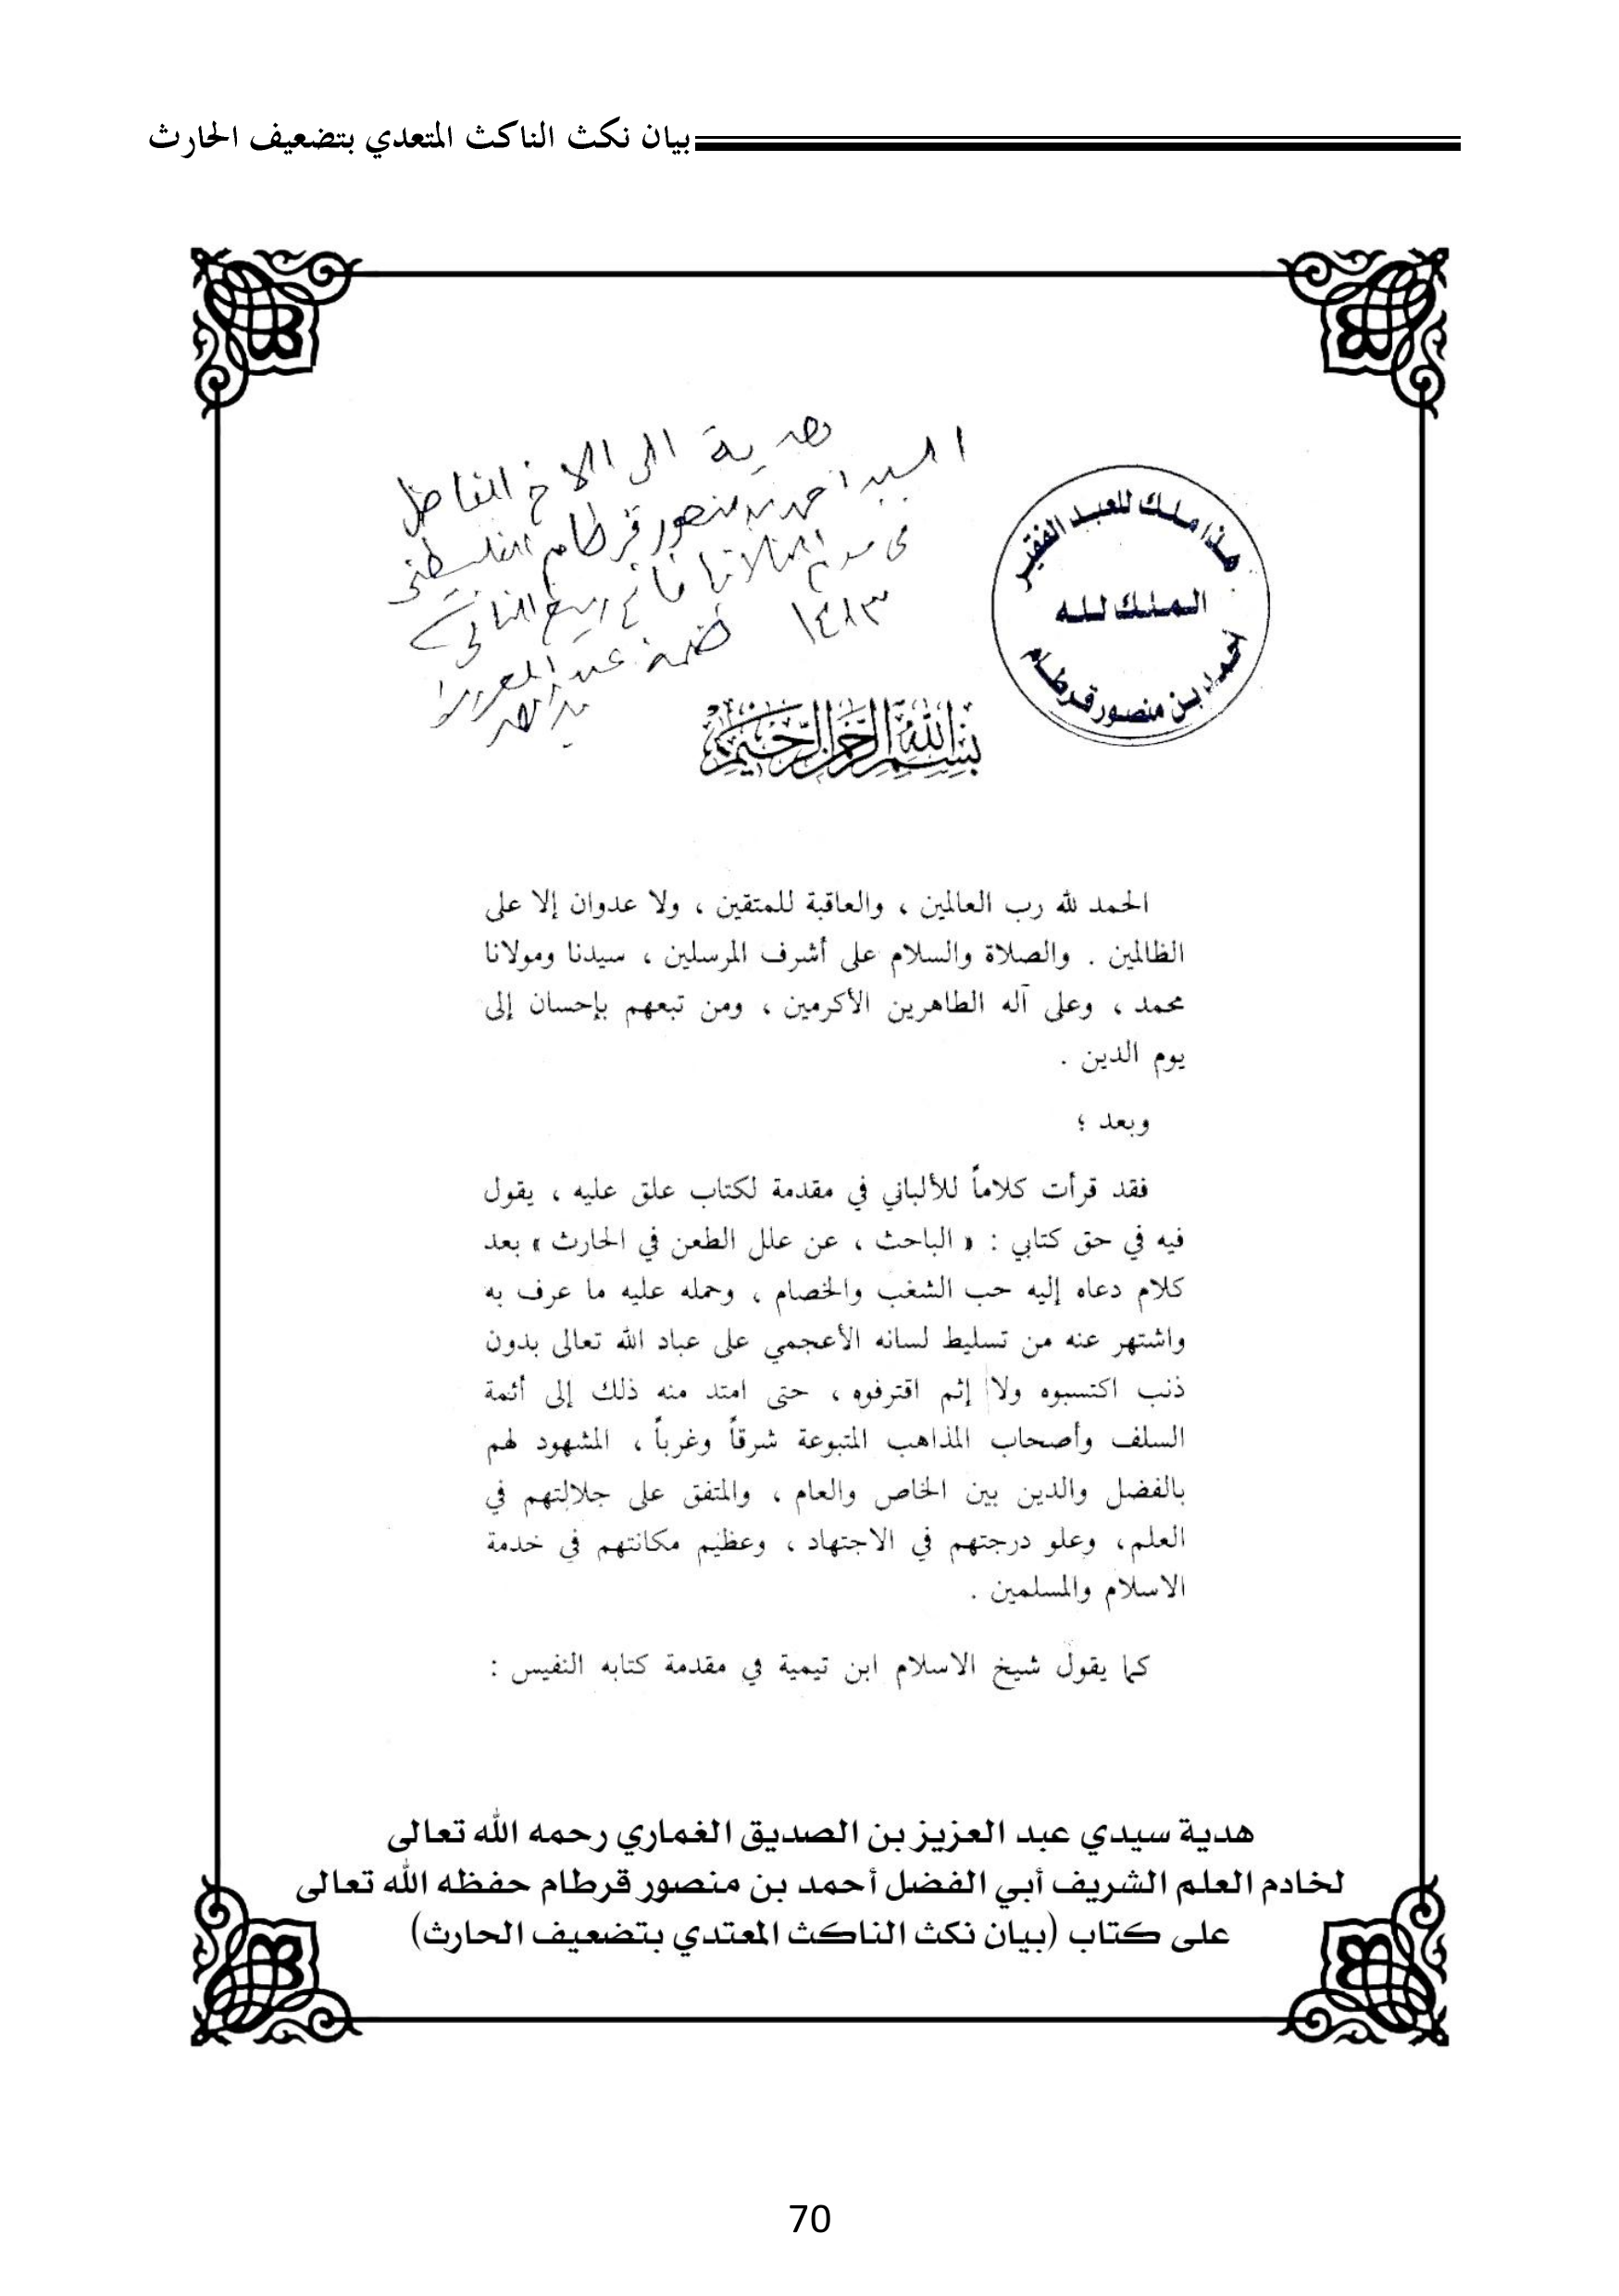 بيان نكث الناكث المتعدي بتضعيف الحارث
هدية الى الاخ الفاضل
السيد احمد بن منصور قرطام الفلسطيني
في يوم الثلاثاء فاتح ربيع الثاني
١٤١٣
عبد العزيز
هذا ملك للعبد الفقير
الملك لله
احمد بن منصور قرطام
بسم الله الرحمن الرحيم
الحمد لله رب العالمين ، والعاقبة للمتقين ، ولا عدوان إلا على
الظالمين . والصلاة والسلام على أشرف المرسلين ، سيدنا ومولانا
محمد ، وعلى آله الطاهرين الأكرمين ، ومن تبعهم بإحسان إلى
يوم الدين .
وبعد ؛
فقد قرأت كلاماً للألباني في مقدمة لكتاب علق عليه ، يقول
فيه في حق كتابي : « الباحث ، عن علل الطعن في الحارث » بعد
كلام دعاه إليه حب الشغب والخصام ، وحمله عليه ما عرف به
واشتهر عنه من تسليط لسانه الأعجمي على عباد الله تعالى بدون
ذنب اكتسبوه ولا إثم اقترفوه ، حتى امتد منه ذلك إلى أئمة
السلف وأصحاب المذاهب المتبوعة شرقاً وغرباً ، المشهود لهم
بالفضل والدين بين الخاص والعام ، والمتفق على جلالتهم في
العلم ، وعلو درجتهم في الاجتهاد ، وعظيم مكانتهم في خدمة
الاسلام والمسلمين .
كما يقول شيخ الاسلام ابن تيمية في مقدمة كتابه النفيس :
هدية سيدي عبد العزيز بن الصديق الغماري رحمه الله تعالى
لخادم العلم الشريف أبي الفضل أحمد بن منصور قرطام حفظه الله تعالى
على كتاب (بيان نكث الناكث المعتدي بتضعيف الحارث)
70